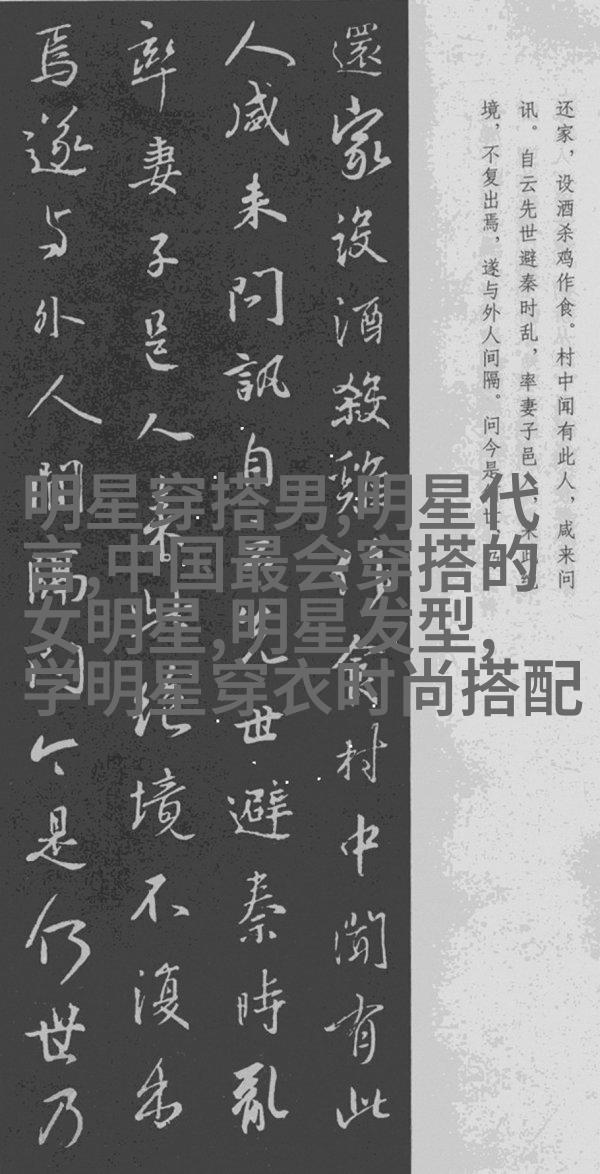 还家，设酒杀鸡作食。村中闻有此人，咸来问
讯。自云先世避秦时乱，率妻子邑人，来此绝
境，不复出焉，遂与外人间隔。问今是何世乃
還家設酒殺雞作食村中聞有此
人咸来問訊自云先世避秦時亂
率妻子邑人来此絶境不復出
焉遂与外人間隔問今是何世乃
明星穿搭男,明星代
言,中国最会穿搭的
女明星,明星发型,
学明星穿衣时尚搭配